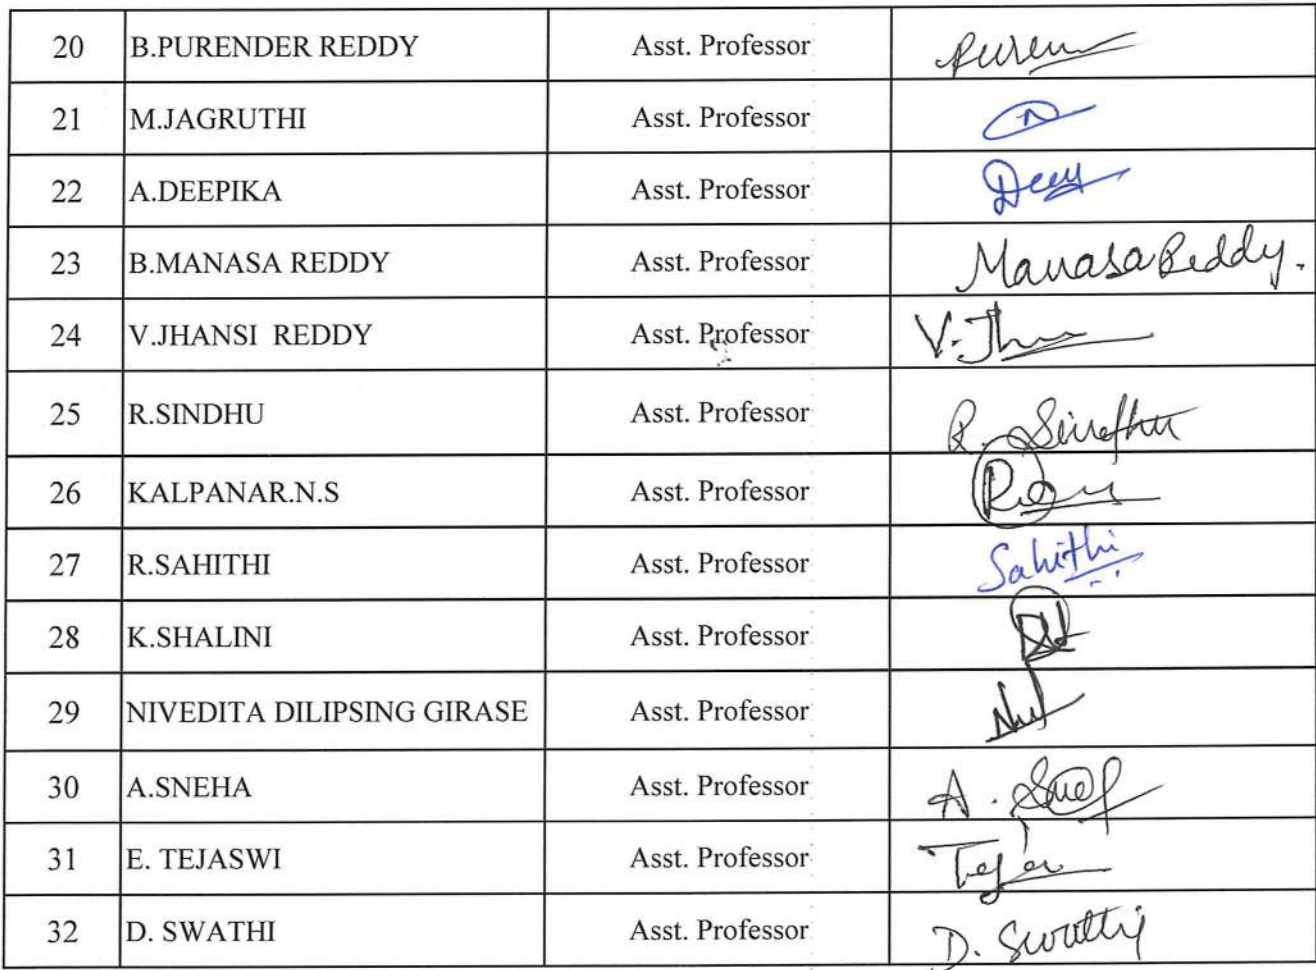 20 B.PURENDER REDDY Asst. Professor Puren
21 M.JAGRUTHI Asst. Professor
22 A.DEEPIKA Asst. Professor Deep
23 B.MANASA REDDY Asst. Professor Manasa Reddy.
24 V.JHANSI REDDY Asst. Professor V.Jhan
25 R.SINDHU Asst. Professor R. Sindhu
26 KALPANAR.N.S Asst. Professor
27 R.SAHITHI Asst. Professor Sahithi
28 K.SHALINI Asst. Professor
29 NIVEDITA DILIPSING GIRASE Asst. Professor
30 A.SNEHA Asst. Professor A. Sneh
31 E. TEJASWI Asst. Professor Teja
32 D. SWATHI Asst. Professor D. Swathi